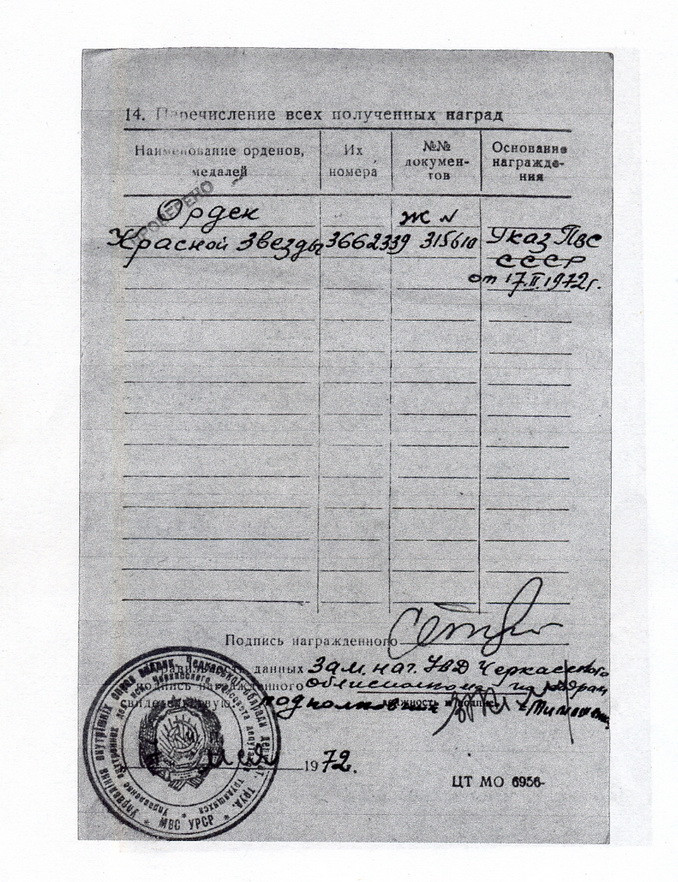 14. Перечисление всех полученных наград
Наименование орденов, медалей
Их номера
№№ документов
Основание награждения
ПРОВЕРЕНО
Орден
Красной Звезды 3662339 Ж № 315610 Указ ПВС
СССР
от 17.II.1972г.
Подпись награжденного
Правильность данных Зам. нач. УВД Черкасского
и подпись награжденного облисполкома
свидетельствую: подполковник Тимошенко
мая 1972.
ЦТ МО 6956-
МВС УРСР